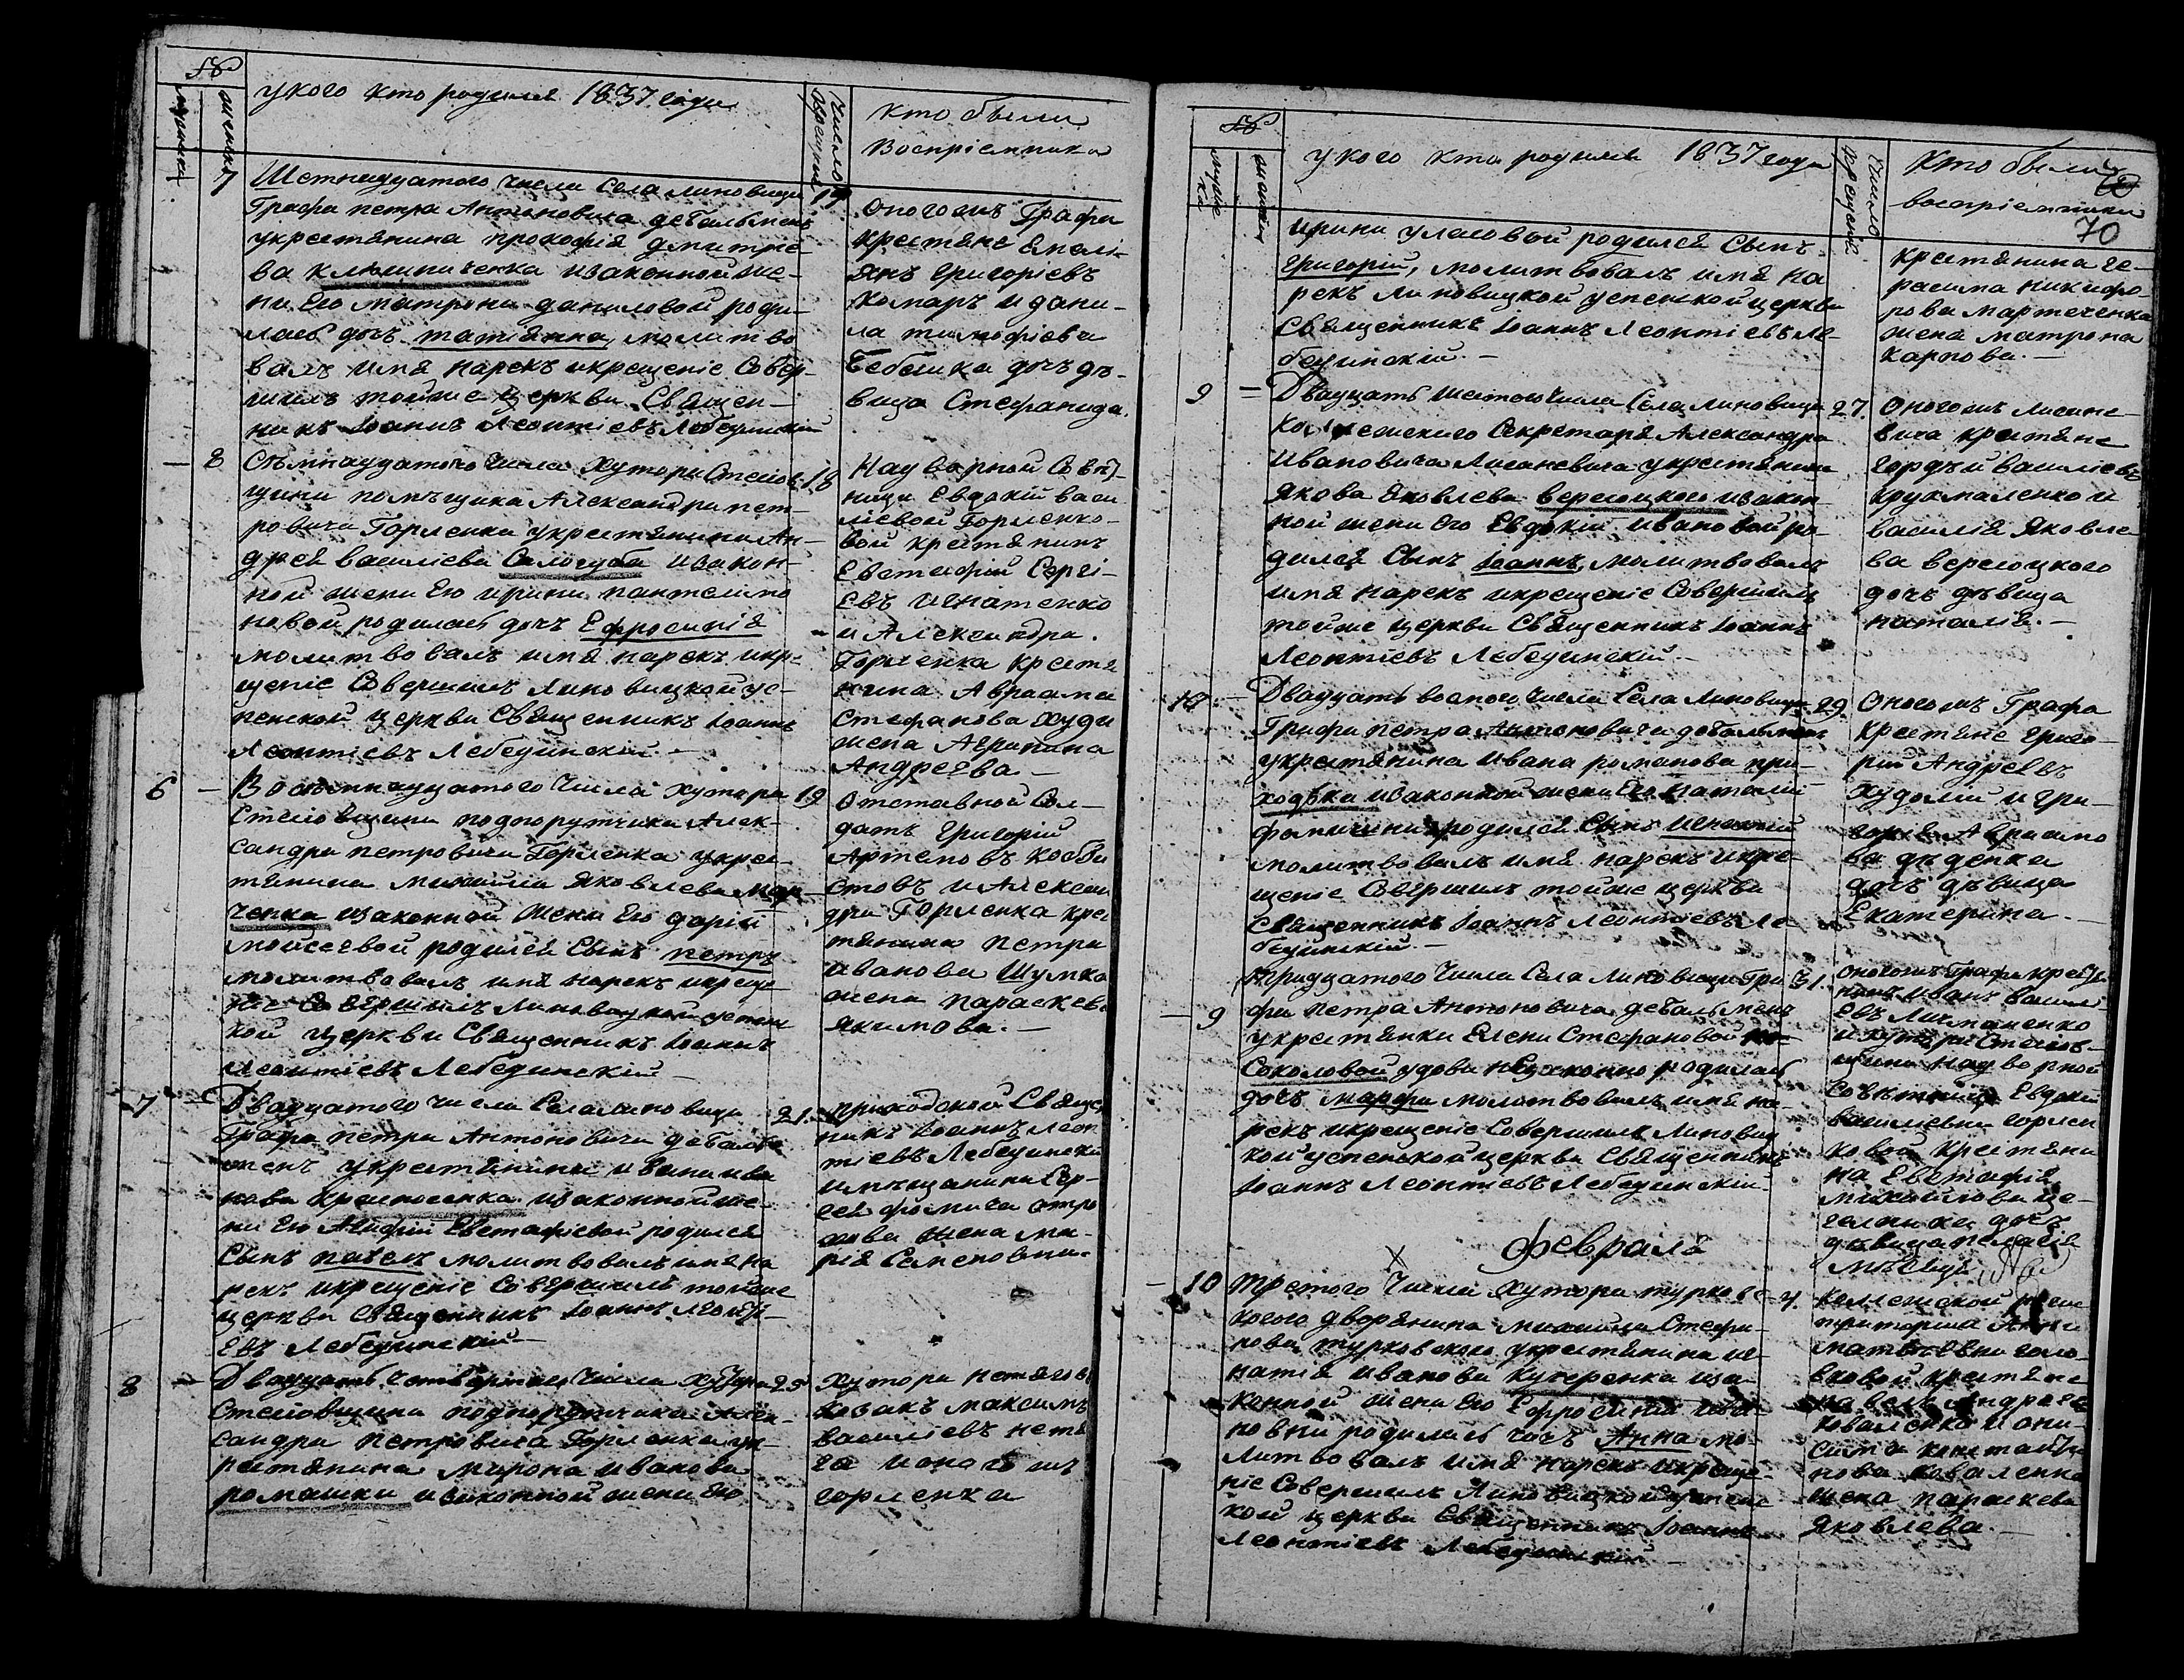 №
мужска
женска
укого кто родился 1837 года
Число крещенія
Кто были
Воспріемники
7
Шетнадцатого числа Села линовици
17
Графа петра Антоновича дебальменъ
укрестянина прокофія дмитріе-
ва ключниченка изаконной же-
ни Его матрони даниловой роди-
лась дочъ татіанна, молитво
валъ имя нарекъ икрещеніе Совер-
шилъ тойже церкви Священ-
никъ Іоаннъ Леонтіевъ Лебединскій
Оногожъ Графа
крестяне Емелі-
янъ григоріевъ
комаръ и дани-
ла тимофіева
дочъ дѣ-
вица Стефанида.
8
Сѣмнадцатого числа Хутора Стеков-
18
щини помѣщика Александра пет-
ровича Горленка укрестянина Ан-
дрея василіева Салогуба изакон-
ной жени Его ирини пантелимо
новой родилась дочъ Ефросинія
молитвовалъ имя нарекъ икре-
щеніе Совершилъ Линовицкой ус-
пенской церкви Священникъ Іоаннъ
Леонтіевъ Лебединскій
Надворной Совѣт-
ници Евдокіи васи
ліевой Горленко-
вой крестянинъ
Евстафій Сергі-
евъ игнатенко
и Александра
Горленка крестя
нина Авраама
Стефанова худи
жена Агрипина
Андреева
6
Восѣмнадцатого Числа хутора
19
подпорутчика Алек-
сандра петровича Горленка укрес-
тянина михаила Яковлева мар
ченка изаконной жени Его даріи
мойсеевой родился Сынъ петръ
молитвовалъ имя нарекъ икреще
ніе Совершилъ Линовицкой успенс
кой церкви Священникъ Іоаннъ
Леонтіевъ Лебединскій
Отставной Сол-
датъ григорій
Артемовъ
и Алексан
дра Горленка крес
тянина петра
иванова Шумка
жена параскева
якимова.
7
Двадцатого числа Села линовици
21.
Графа петра Антоновича дебальмъ
менъ укрестянина ивана ива
нова изаконной же-
ни Его Агафіи Евстафіевой родился
Сынъ павелъ молитвовалъ имя на
рекъ икрещеніе Совершилъ тойже
церкви Священникъ Іоаннъ Леонті-
евъ Лебединскій
приходской Свящ
никъ Іоаннъ Леон
тіевъ Лебединскій
имѣщанина Сер-
гея фомича
жена ма-
рія Семеновна.
8
Двадцатъ Четвертого Числа Хутора
25
Стековщини подпорутчика Алек-
сандра петровича Горленка ук-
рестянина мирона иванова
ромашки изаконной жени Его
Хутора
козакъ максимъ
василіевъ нетя
га и оногожъ
горленка
№
мужска
женска
укого кто родился 1837 года
Число крещенія
Кто были
воспріемники
70
ирини уласовой родился Сынъ
григорій, молитвовалъ имя на
рекъ линовицкой успенской церкви
Священникъ Іоаннъ Леонтіевъ Ле-
бединскій
крестянина ге-
расима никифо-
рова мартченка
жена матрона
карпова.
9
Двадцатъ шестого числа Села линовици
27.
Колежского Секретаря Александра
Ивановича укрестянина
Якова Яковлева вересоцкого изакон
ной жени Его Евдокіи ивановой ро-
дился Сынъ Іоаннъ, молитвовалъ
имя нарекъ икрещеніе Совершилъ
тойже церкви Священникъ Іоаннъ
Леонтіевъ Лебединскій.
Оногожъ
вича крестяне
гордѣй василіевъ
крухмаленко и
василія Яковле
ва вересоцкого
дочъ дѣвица
наталія.
10
Двадцатъ восмого числа Села Линовици
29.
Графа петра Антоновича дебальменъ
укрестянина ивана романова при-
ходка изаконной жени Его наталіи
фомичени родился Сынъ игнатій
молитвовалъ имя нарекъ икре-
щеніе Совершилъ тойже церкви
Священникъ Іоаннъ Леонтіевъ Ле
бединскій
Оногожъ Графа
крестяне григо
рій Андреевъ
худолій и гри-
горія Аврамо
ва
дочъ дѣвица
Екатерина
9
тридцатого числа Села Линовици Гра
31.
фа петра Антоновича дебальменъ
укрестянки Елени Стефановой
Соколовой удови незаконно родилась
дочъ марфа молитвовалъ имя на-
рекъ икрещеніе Совершилъ Линовиц
кой успенской церкви Священникъ
Іоаннъ Леонтіевъ Лебединскій.
оногожъ Графа крестя
нинъ иванъ васил
евъ Личманенко
и хутора Стеков-
щини надворной
Совѣтници Евдокіи
василіевни горлен
ковой крестяни
на Евстафія
михайлова
дочъ
дѣвица пелагія
Февраля
мѣсяца
10
третого Числа Хутора турковс
4.
кого дворянина михаила Стефа-
нова турковского укрестянина иг-
натія иванова кучеренка иза-
конной жени Его Ефросиніи Ива-
новни родилась дочъ Анна мо-
литвовалъ имя нарекъ икреще-
ніе Совершилъ Линовицкой успенс
кой церкви Священникъ Іоаннъ
Леонтіевъ Лебединскій
Колежской
Анни
матвѣевни голо-
вковой крестяне
павелъ Андреевъ
коваленко и они-
сима константи
нова коваленка
жена параскева
Яковлева.